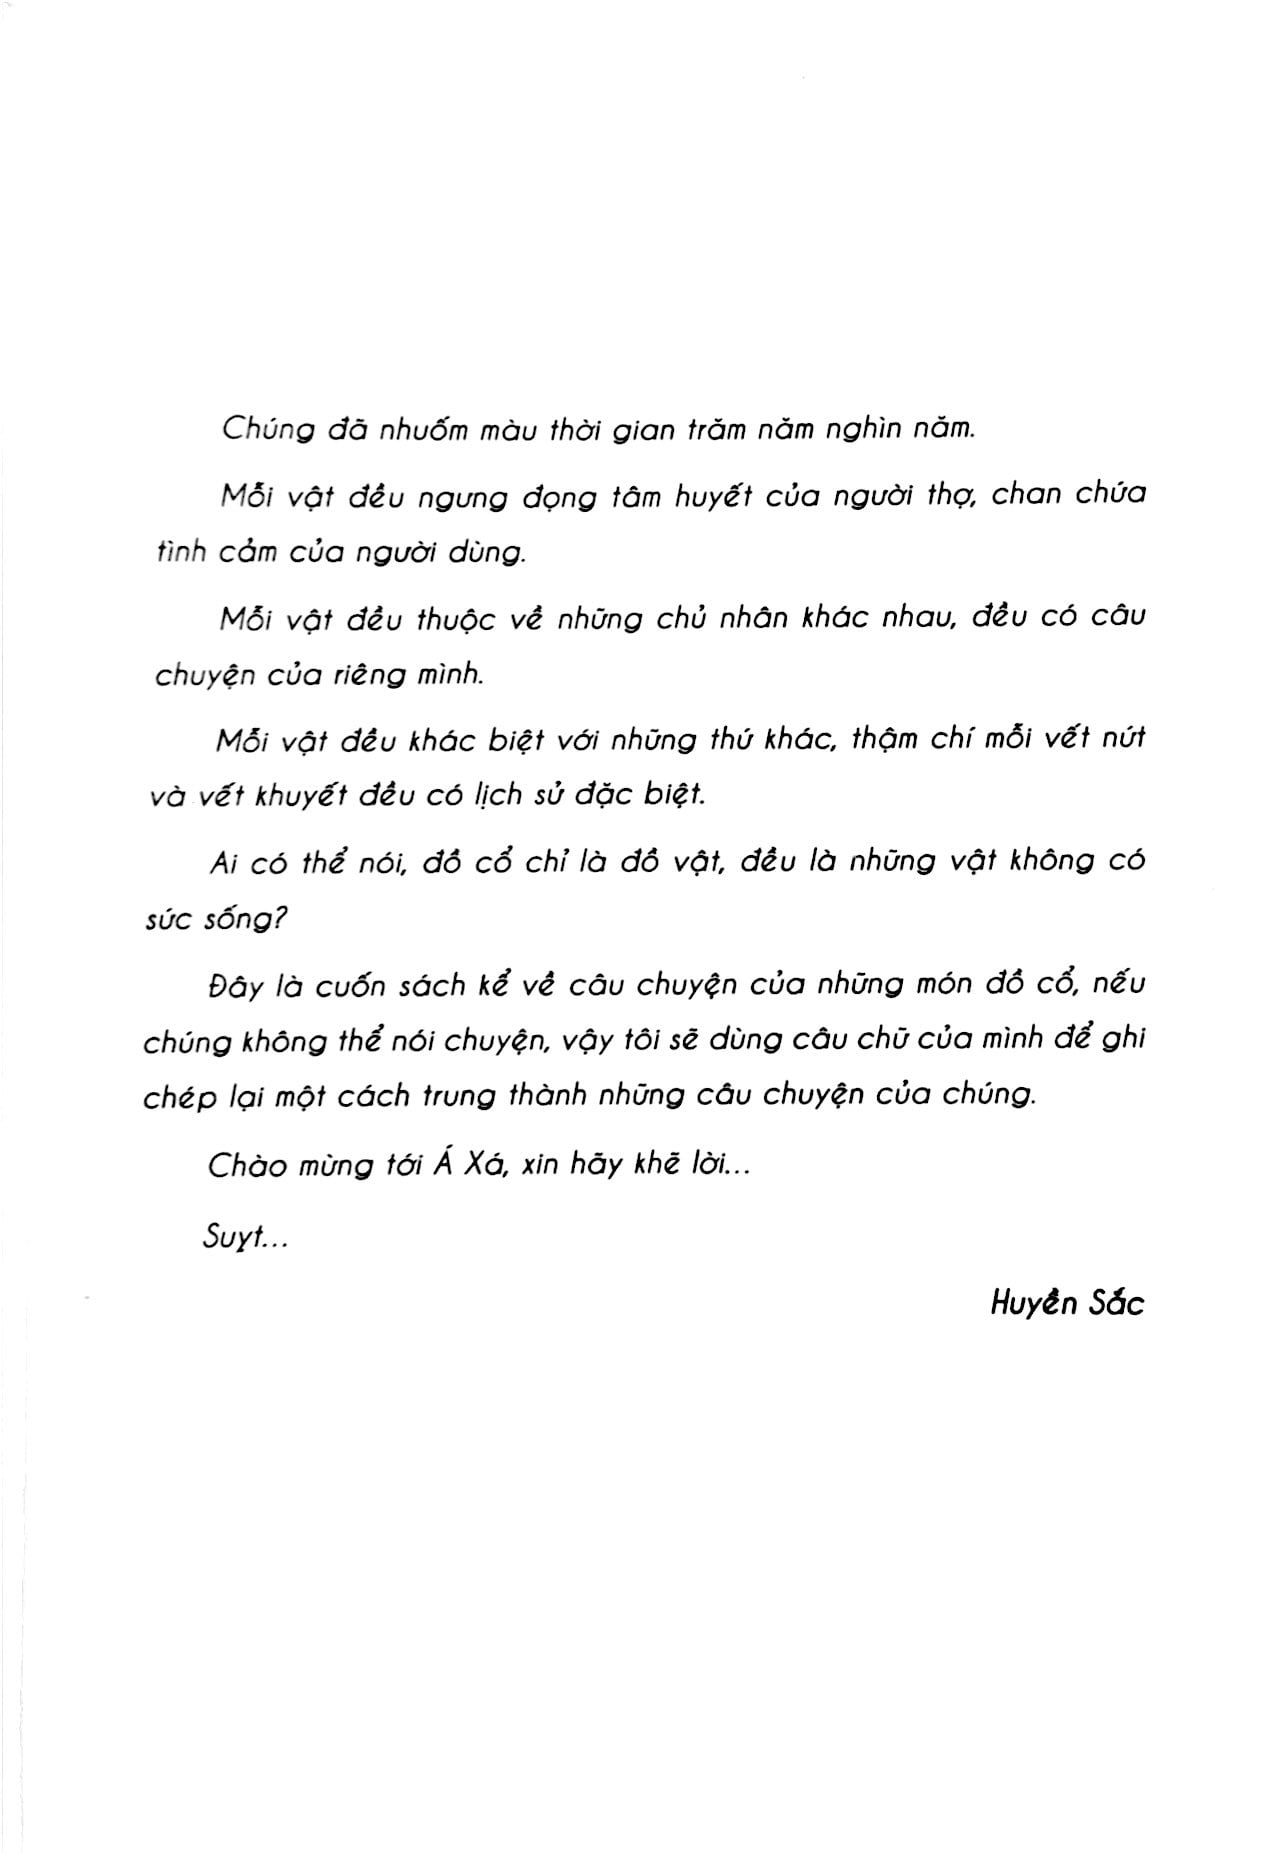 Chúng đã nhuốm màu thời gian trăm năm nghìn năm.
Mỗi vật đều ngưng đọng tâm huyết của người thợ, chan chứa
tình cảm của người dùng.
Mỗi vật đều thuộc về những chủ nhân khác nhau, đều có câu
chuyện của riêng mình.
Mỗi vật đều khác biệt với những thứ khác, thậm chí mỗi vết nứt
và vết khuyết đều có lịch sử đặc biệt.
Ai có thể nói, đồ cổ chỉ là đồ vật, đều là những vật không có
sức sống?
Đây là cuốn sách kể về câu chuyện của những món đồ cổ, nếu
chúng không thể nói chuyện, vậy tôi sẽ dùng câu chữ của mình để ghi
chép lại một cách trung thành những câu chuyện của chúng.
Chào mừng tới Á Xá, xin hãy khẽ lời...
Suỵt...
Huyền Sắc